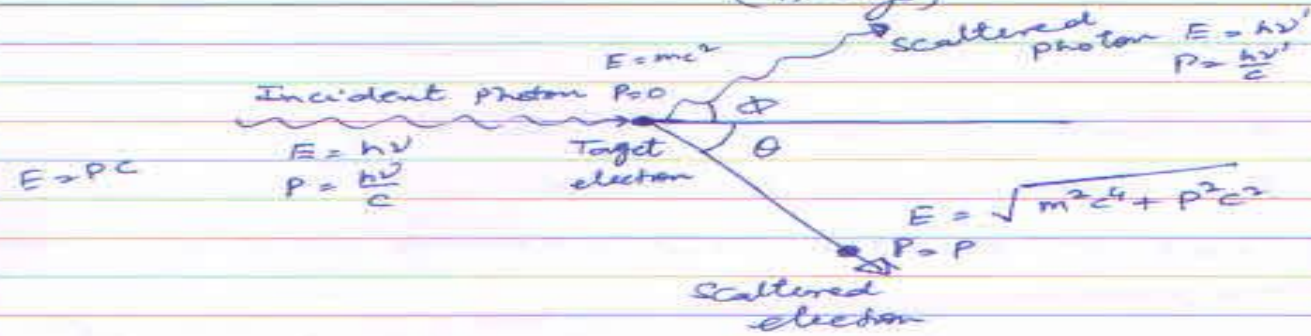 Scattered
photon E = hν'
P = hν'/c
E = mc²
Incident photon P=0
ϕ
E = hν
P = hν/c
Target
electron
θ
E = PC
E = √m²c⁴ + P²c²
P = P
Scattered
electron